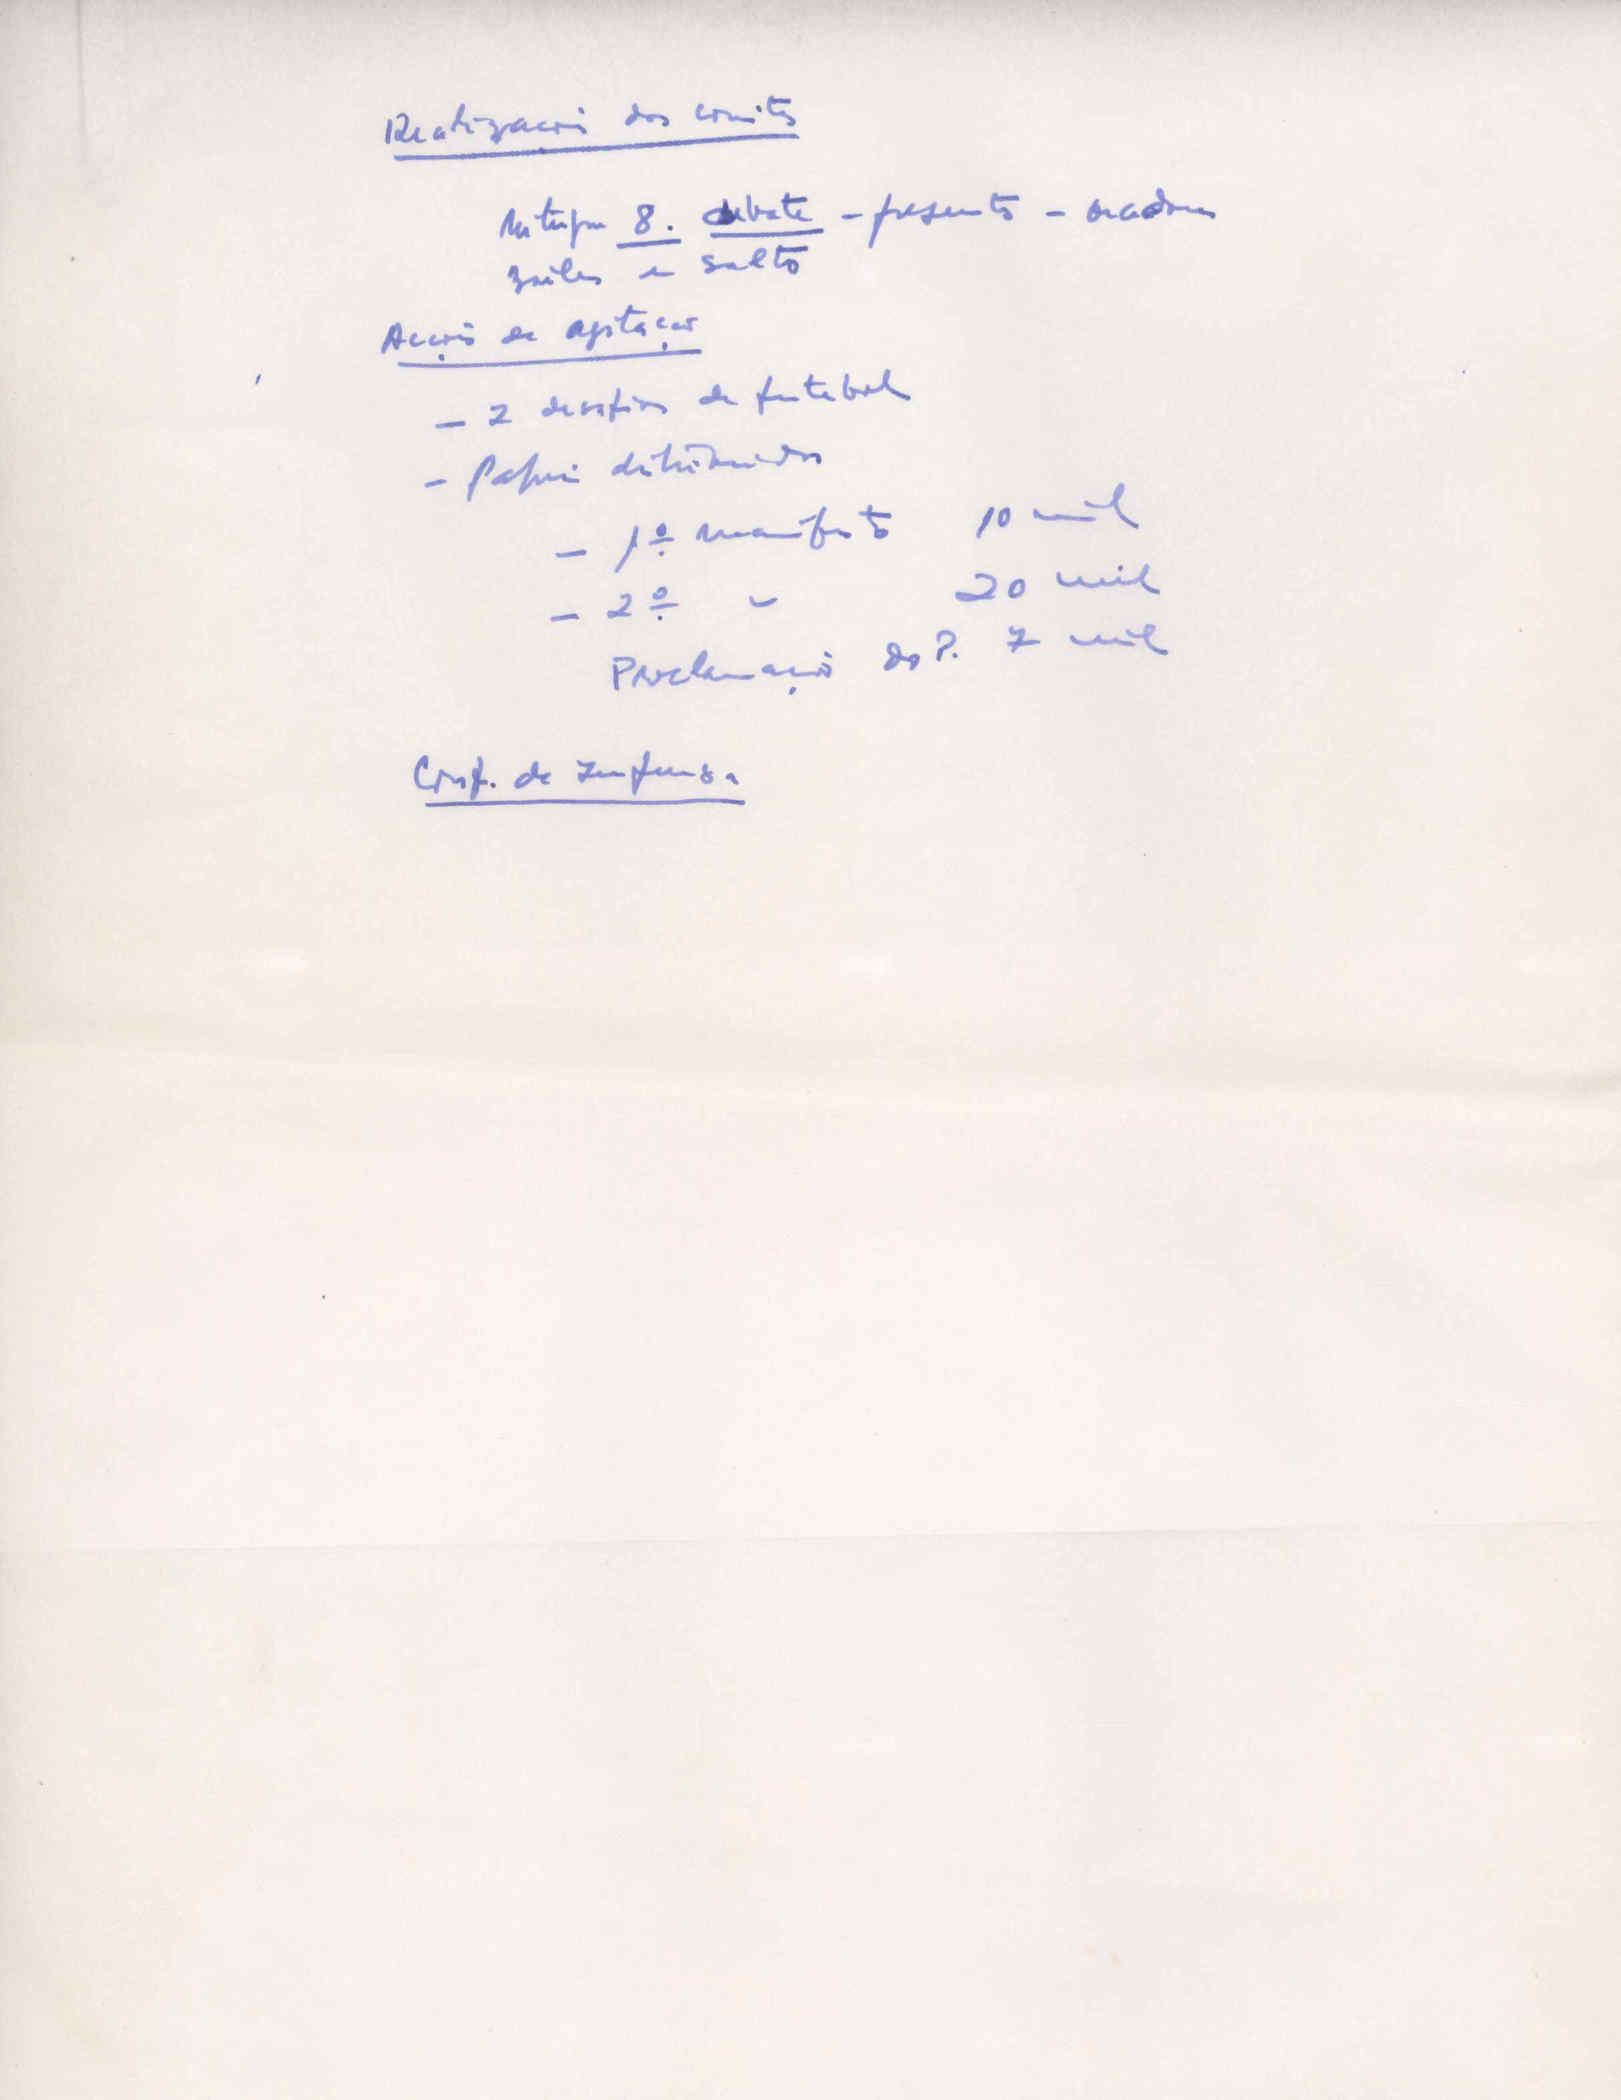 Realizações dos comités
8. debate - presentes - oradores
e salto
Acções de agitação
- 2 desafios de futebol
- Papeis distribuidos
- 1º manifesto 10 mil
- 2º " 20 mil
Proclamação do P. 7 mil
Conf. de Imprensa